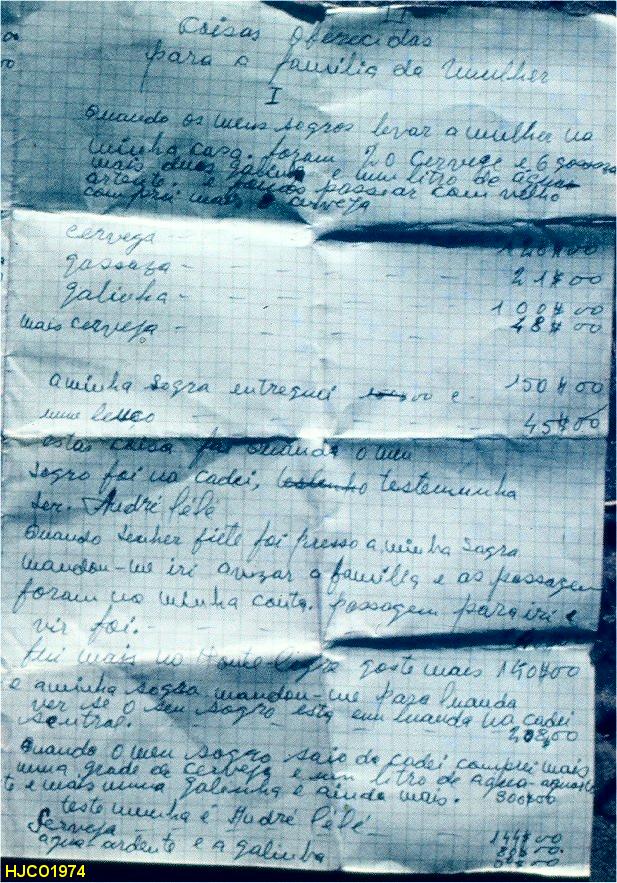 II
Coisas oferecidas
para a familia da mulher
I
Quando os meus sogros levar a mulher na
minha casa. foram 20 Cervege e 6 gassosa
mais duas galinha e num litro de agua
ardente e passear com velho
comprei mais cerveja
cervega - 120$00
gassaza - 21$00
galinha - 100$00
mais cerveja - 48$00
aminha sogra entreguei e - 150$00
num lenço 45$00
estas coisa foi Quando o meu
sogro foi na cadei, testemunha
ser. André Pélé
Quando Senher fiele foi presso aminha sogra
mandou-me iri avizar a familia e as passagem
foram na minha conta. passagem para iri e
vir foi. -
fui mais no gaste mais 150$00
e aminha sogra mandou-me para luanda
ver se o seu sogro esta em luanda na cadei
sentral. 208,00
Quando o meu sogro saio da cadei comprei mais
numa grade de cerveja e num litro de agua-ardente
te e mais numa galenha e ainda mais. 300$00
teste munha é André Pélé
Serveja 144$00
agua ardente e a galinha
HJCO1974